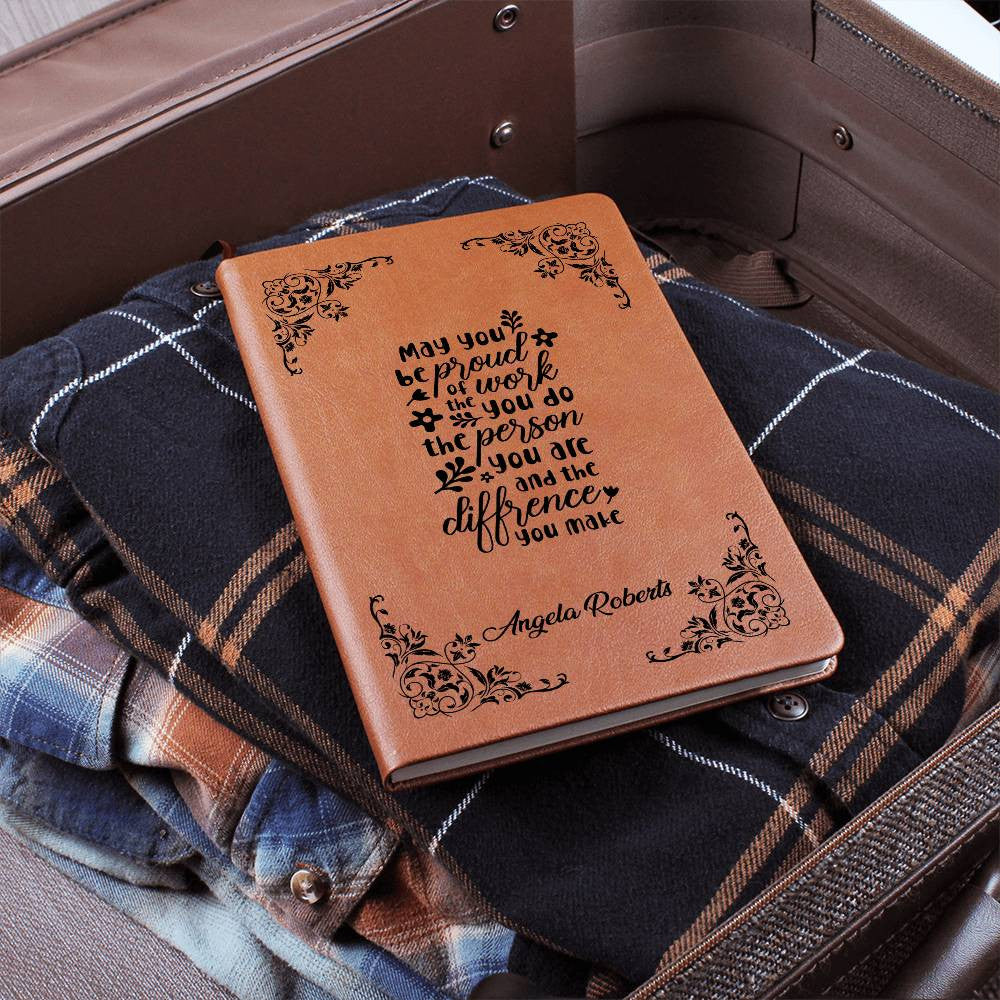 May you
be proud
of work
the you do
the person
you are
and the
diffrence
you make
Angela Roberts